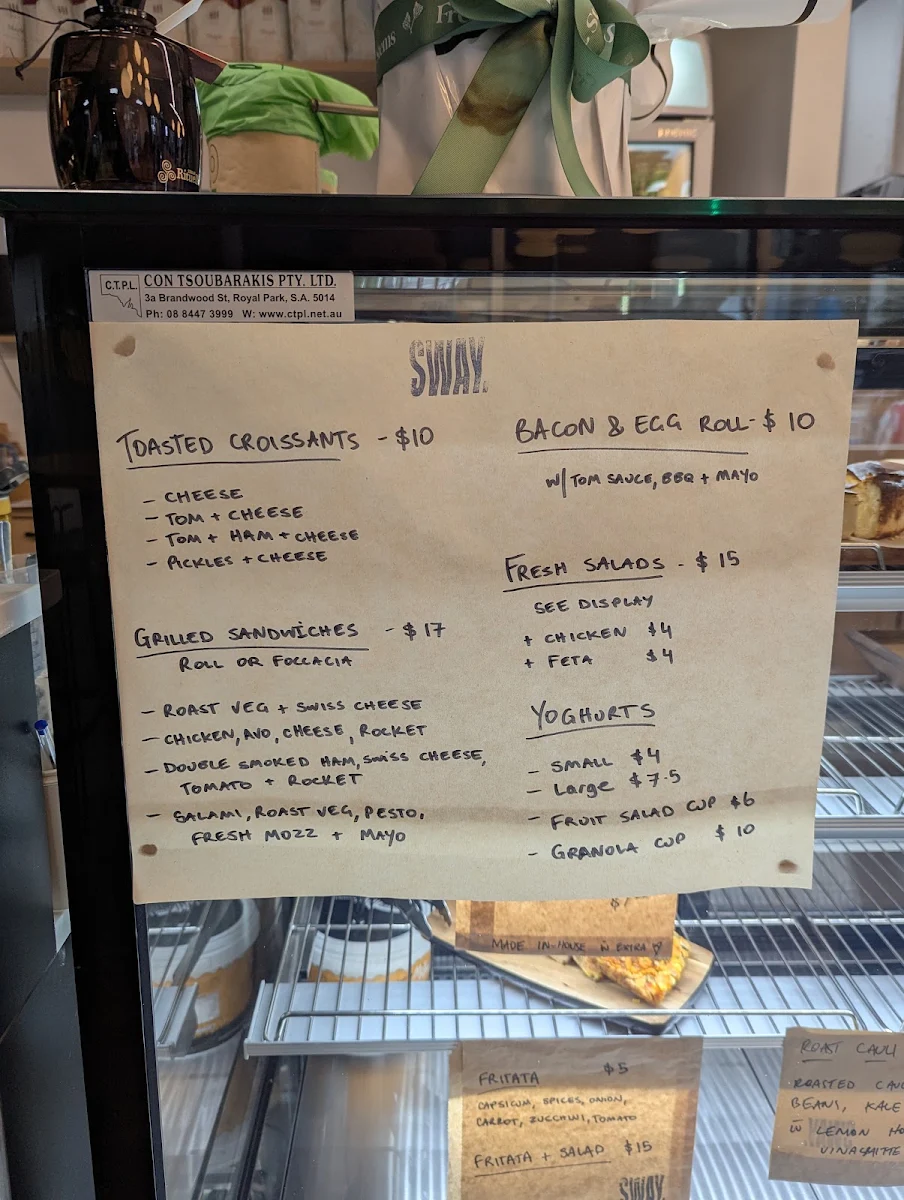 C.T.P.L.
CON TSOUBARAKIS PTY. LTD.
3a Brandwood St, Royal Park, S.A. 5014
Ph: 08 8447 3999 W: www.ctpl.net.au
SWAY.
TOASTED CROISSANTS - $10
- CHEESE
- TOM + CHEESE
- TOM + HAM + CHEESE
- PICKLES + CHEESE
GRILLED SANDWICHES - $17
ROLL OR FOCCACIA
- ROAST VEG + SWISS CHEESE
- CHICKEN, AVO, CHEESE, ROCKET
- DOUBLE SMOKED HAM, SWISS CHEESE,
TOMATO + ROCKET
- SALAMI, ROAST VEG, PESTO,
FRESH MOZZ + MAYO
BACON & EGG ROLL - $10
W/ TOM SAUCE, BBQ + MAYO
FRESH SALADS - $15
SEE DISPLAY
+ CHICKEN $4
+ FETA $4
YOGHURTS
- SMALL $4
- Large $7.5
- FRUIT SALAD CUP $6
- GRANOLA CUP $10
MADE IN-HOUSE
FRITATA $5
CAPSICUM, SPICES, ONION,
CARROT, ZUCCHINI, TOMATO
FRITATA + SALAD $15
SWAY.
ROAST CAULI
ROASTED
BEANS, KALE
LEMON